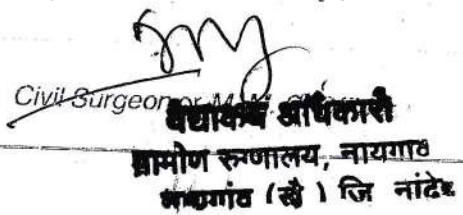 Civil Surgeon or M.
वैद्यकीय अधिकारी
ग्रामीण रुग्णालय, नायगाव
नायगांव (खै) जि नांदेड